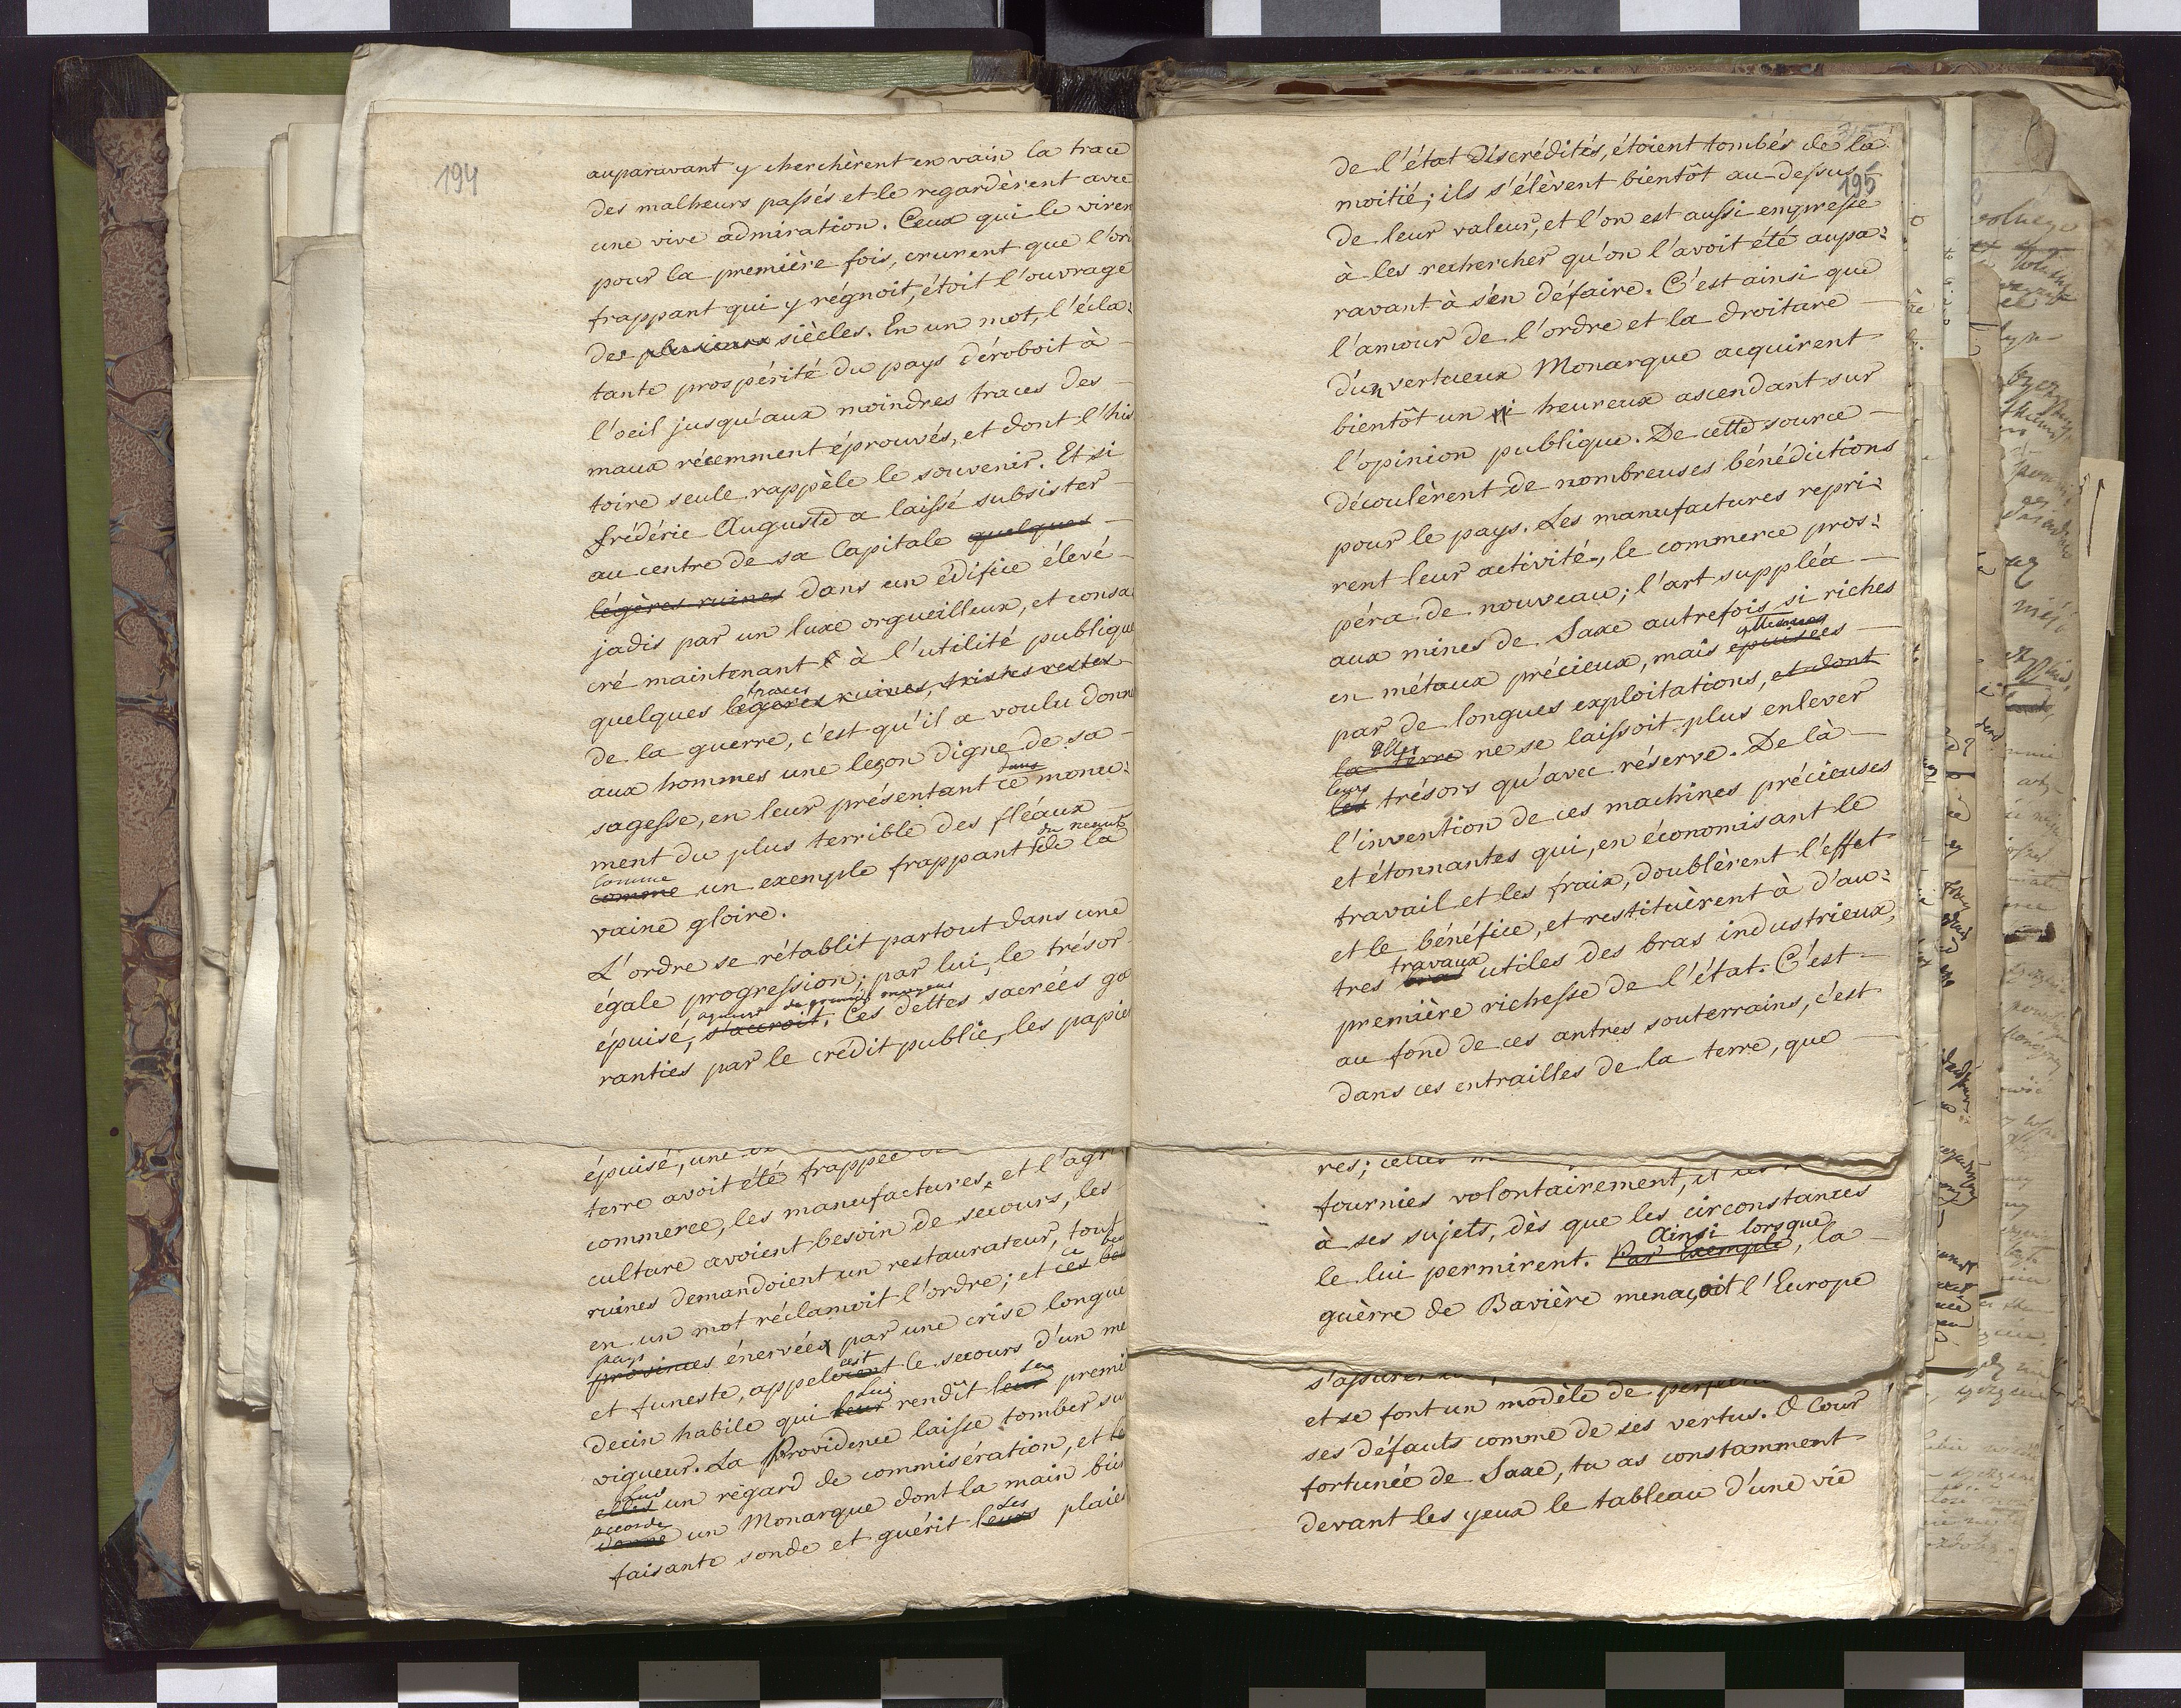 194
auparavant y cherchèrent en vain la trace
des malheurs passés et le regardèrent avec
une vive admiration. Ceux qui le viren
pour la première fois, crurent que l'or
frappant qui y régnoit, étoit l'ouvrage
des plusieurs siècles. En un mot, l'écla-
tante prospérité du pays déroboit à
l'oeil jusqu'aux moindres traces des
maux récemment éprouvés, et dont l'his
toire seule rappèle le souvenir. Et si
frédéric Auguste a laissé subsister
au centre de sa Capitale quelques
légères ruines dans un édifice élevé
jadis par un luxe orgueilleux, et consa
cré maintenant à l'utilité publique
traces
quelques légères ruines, tristes restes
de la guerre, c'est qu'il a voulu donne
aux hommes une leçon digne de sa
dans
sagesse, en leur présentant ce monu-
ment du plus terrible des fléaux
comme du neant
comme un exemple frappant de la
vaine gloire.
L'ordre se rétablit partout dans une
égale progression; par lui, le trésor
de grands moyens
épuisé, s'accroit. Ces dettes sacrées ga
ranties par le crédit public, les papie
épuisé, une
terre avoit été frappée
commerce, les manufactures, et l'agri
culture avoient besoin de secours, les
ruines demandoient un restaurateur, tout
en un mot réclamoit l'ordre; et ces bel
pays
provinces énervées par une crise longue
oit
et funeste, appeloient le secours d'un mé
lui sa
decin habile qui leur rendît leur premi
vigueur. La Providence laisse tomber su
lui
elles un régard de commisération, et le
accorde
donne un Monarque dont la main bie
les
faisante sonde et guérit leurs plaies
195
de l'état discrédités, étoient tombés de la
moitié; ils s'élèvent bientôt au-dessus
de leur valeur, et l'on est aussi empressé
à les rechercher qu'on l'avoit été aupa-
ravant à s'en défaire. C'est ainsi que
l'amour de l'ordre et la droiture
d'un vertueux Monarque acquirent
bientôt un si heureux ascendant sur
l'opinion publique. De cette source
découlèrent de nombreuses bénédictions
pour le pays. Les manufactures repri-
rent leur activité, le commerce pros-
péra de nouveau; l'art suppléa
aux mines de Saxe autrefois si riches
en métaux précieux, mais épuisées
par de longues exploitations, et dont
Elles
la terre ne se laissoit plus enlever
leurs
les trésors qu'avec réserve. De là
l'invention de ces machines précieuses
et étonnantes qui, en économisant le
travail et les frais, doublèrent l'effet
et le bénéfice, et restituèrent à d'au-
travaux
tres bras utiles des bras industrieux,
première richesse de l'état. C'est
au fond de ces antres souterrains, c'est
dans ces entrailles de la terre, que
res;
fournies volontairement, et
à ses sujets, dès que les circonstances
Ainsi lorsque
le lui permirent. Par exemple, la
guèrre de Bavière menaçoit l'Europe
et se font un modèle de
ses défauts comme de ses vertus. O Cour
fortunée de Saxe, tu as constamment
devant les yeux le tableau d'une vie